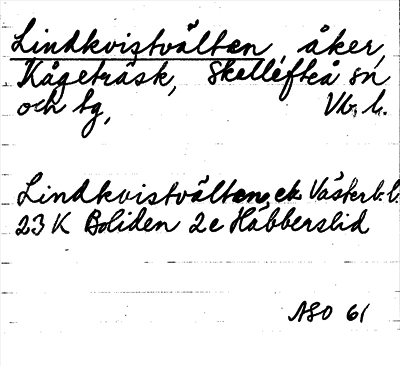 Lindkvistvältan, åker,
Kågeträsk, Skellefteå sn
och tg, Vb. l.
Lindkvistvältan, ek. Västerb. l.
23 K Boliden 2c Häbberslid
ASO 61